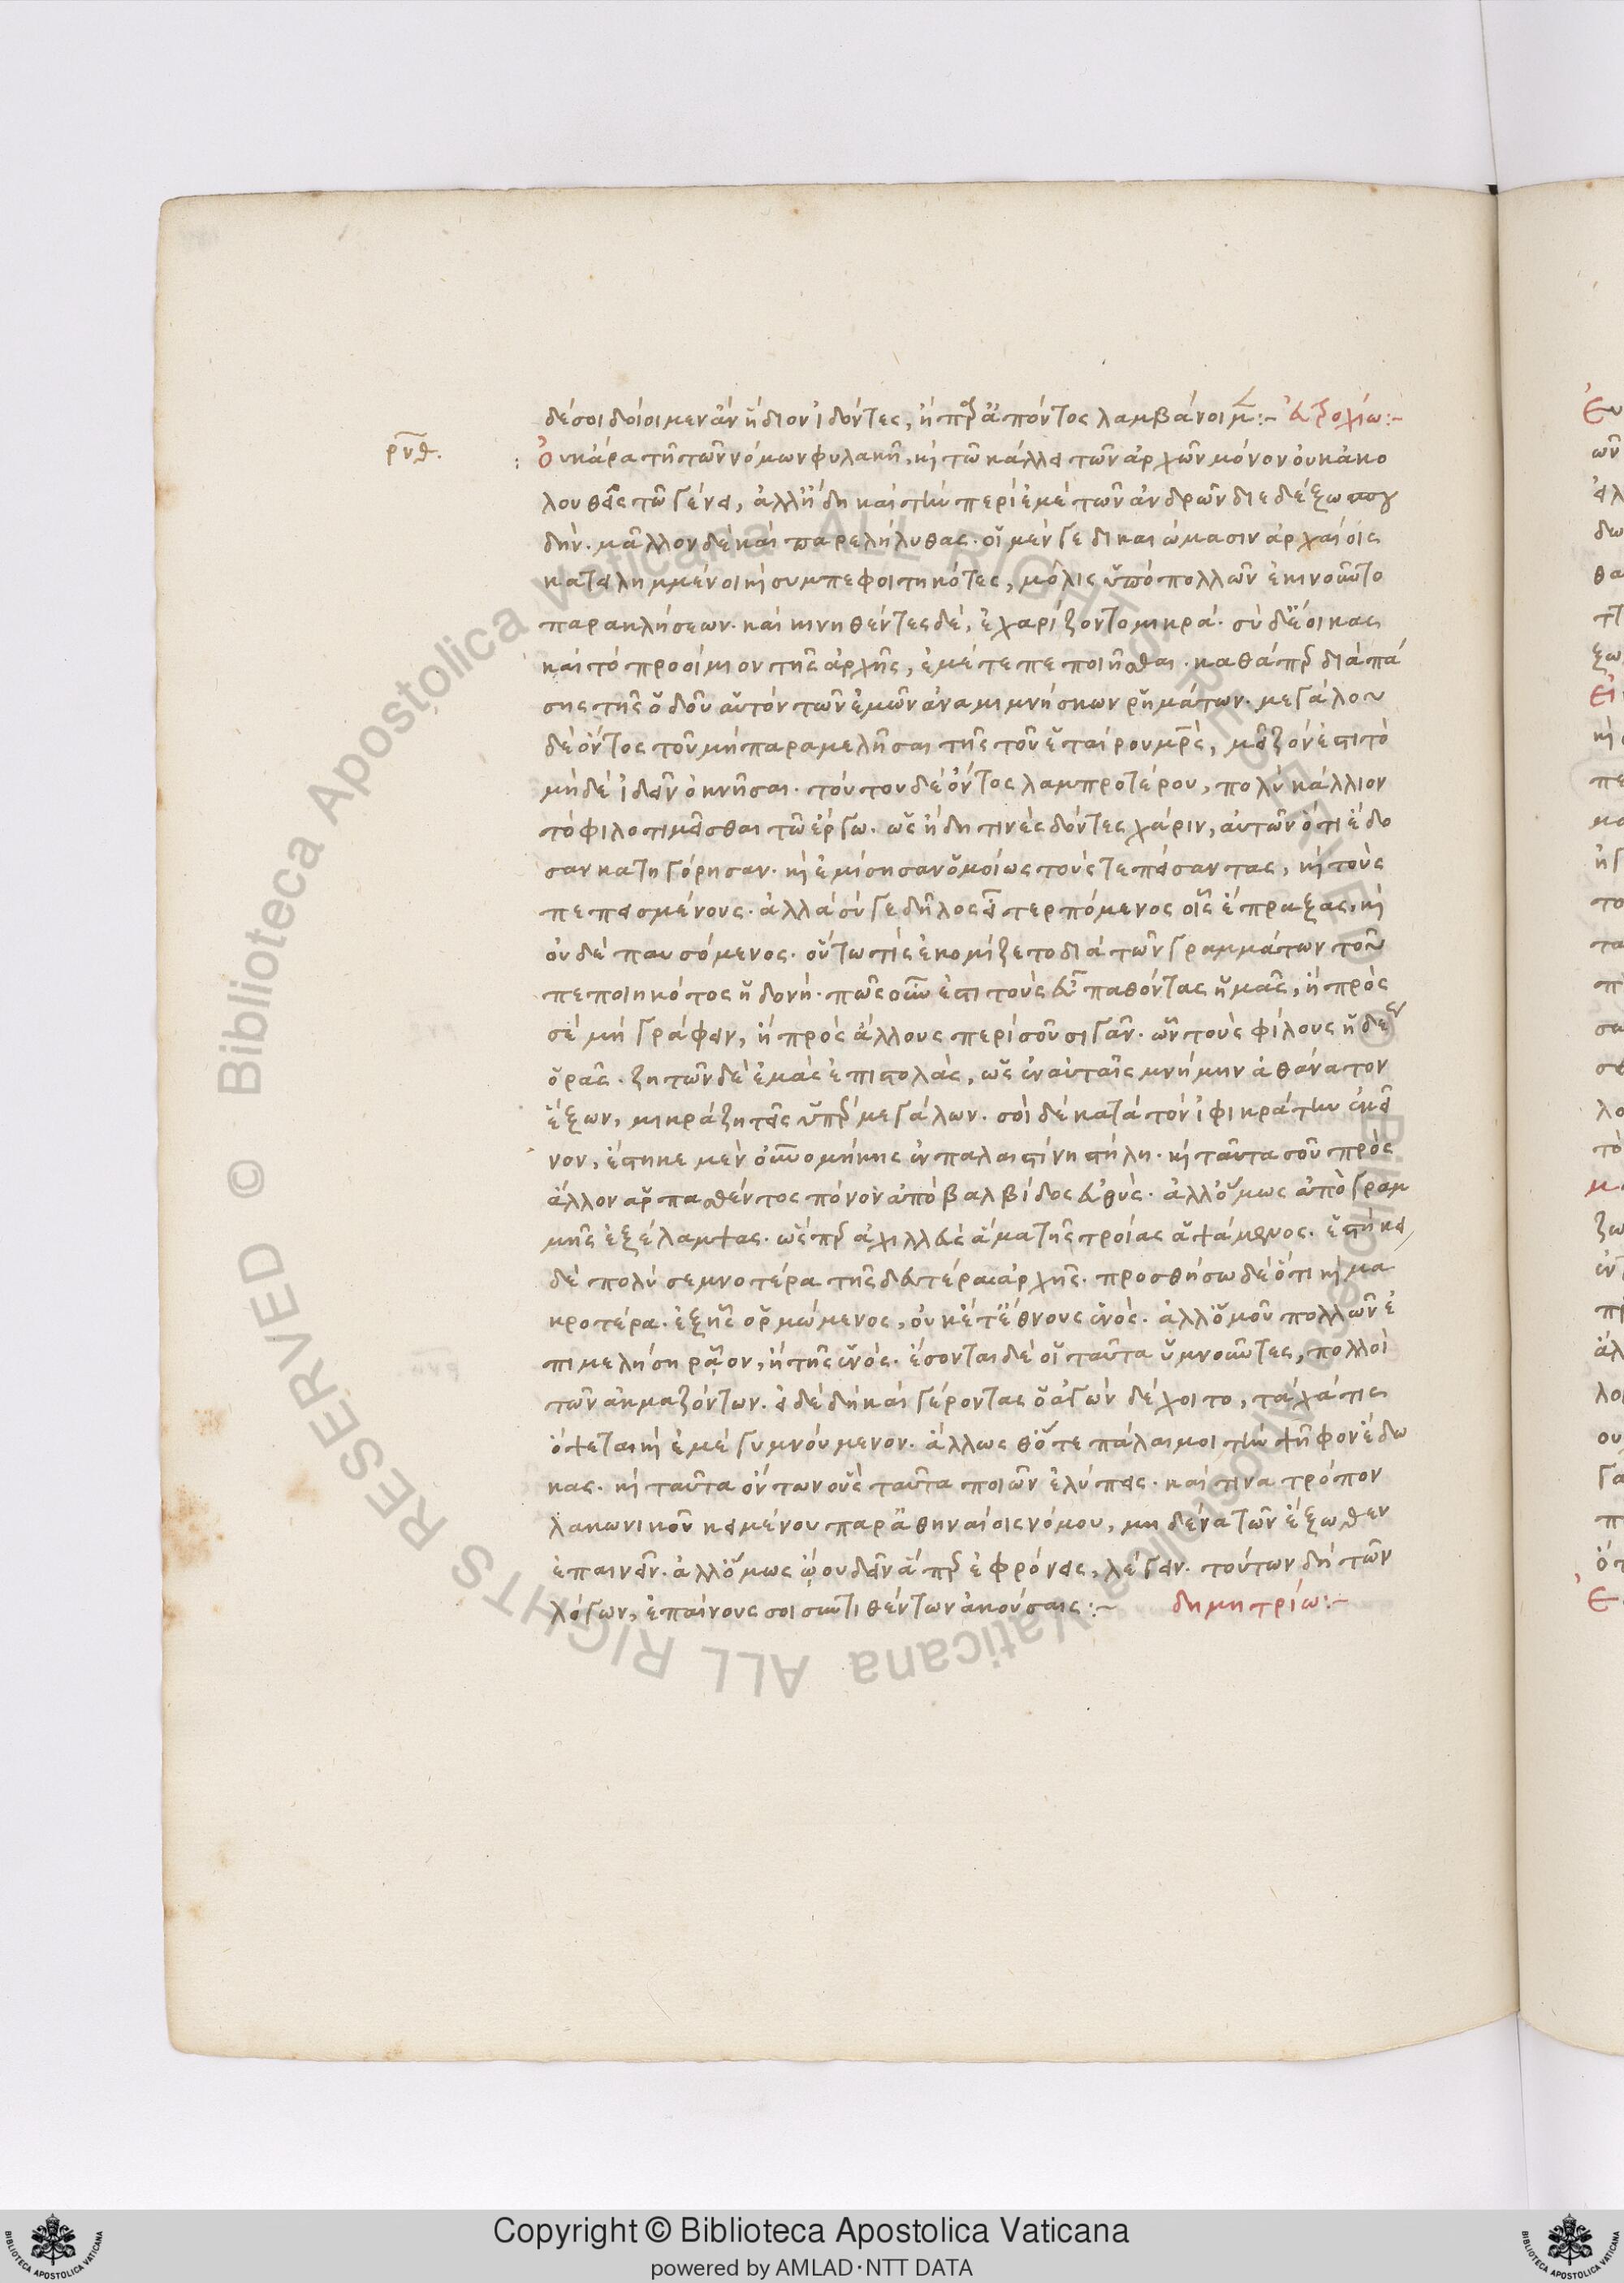 δέ σοι δοίοιμεν ἂν ἥδιον ἰδόντες, ἢ παρὰ ἀπόντος λαμβάνοιμεν :- Εὐτολμίω :-
ρνθ.
Οὐκ ἄρα τῆ τῶν νόμων φυλακῆ, καὶ τῶ κάλλει τῶν ἀρχῶν μόνον οὐκ ἀκο
λουθεῖς τῶ γένει, ἀλλ' ἤδη καὶ τὴν περὶ ἐμὲ τῶν ἀνδρῶν διεδέξω σπου
δήν. μᾶλλον δὲ καὶ παρελήλυθας. οἱ μέν γε δικαιώμασιν ἀρχαίοις
κατειλημμένοι καὶ συμπεφοιτηκότες, μόλις ὑπὸ πολλῶν ἐκινοῦντο
παρακλήσεων. καὶ κινηθέντες δὲ, ἐχαρίζοντο μικρά. σὺ δ' ἔοικας
καὶ τὸ προοίμιον τῆς ἀρχῆς, ἐμέ τε πεποιῆσθαι. καθάπερ διὰ πά
σης τῆς ὁδοῦ αὑτὸν τῶν ἐμῶν ἀναμιμνήσκων ῥημάτων. μεγάλου
δὲ ὄντος τοῦ μὴ παραμελῆσαι τῆς τοῦ ἑταίρου μητρὸς, μεῖζον ἐστι τὸ
μηδὲ ἰδεῖν ὀκνῆσαι. τούτου δὲ ὄντος λαμπροτέρου, πολὺ κάλλιον
τὸ φιλοτιμεῖσθαι τῶ ἔργω. ὡς ἤδη τινὲς δόντες χάριν, αὑτῶν ὅτι ἔδο
σαν κατηγόρησαν. καὶ ἐμίσησαν ὁμοίως τούς τε πείσαντας, καὶ τοὺς
πεπεισμένους. ἀλλὰ σύ γε δῆλος εἶ τερπόμενος οἷς ἔπραξας, καὶ
οὐδὲ παυσόμενος. οὕτω τις ἐκομίζετο διὰ τῶν γραμμάτων τοῦ
πεποιηκότος ἡδονή. πῶς οὖν ἔστι τοὺς εὖ παθόντας ἡμᾶς, ἢ πρὸς
σὲ μὴ γράφειν, ἢ πρὸς ἄλλους περὶ σοῦ σιγᾶν. ὧν τοὺς φίλους ἡδεῖς
ὁρᾶς. ζητῶν δὲ ἐμὰς ἐπιστολὰς, ὡς ἐν αὐταῖς μνήμην ἀθάνατον
ἕξων, μικρὰ ζητεῖς ὑπὲρ μεγάλων. σοὶ δὲ κατὰ τὸν ἰφικράτην ἐκεῖ
νον, ἕστηκε μὲν οὐρανομήκης ἐν παλαιστίνη στήλη. καὶ ταῦτα σοῦ πρὸς
ἄλλον ἁρπασθέντος πόνον ἀπὸ βαλβίδος εὐθύς. ἀλλ' ὅμως ἀπὸ γραμ
μῆς ἐξέλαμψας. ὥσπερ ἀχιλλεὺς ἅμα τῆς τροίας ἁψάμενος. ἑστήκει
δὲ πολὺ σεμνοτέρα τῆς δευτέρας ἀρχῆς. προσθήσω δὲ ὅτι καὶ μα
κροτέρα. ἑξῆς ὁρμώμενος, οὐκ ἔτ' ἔθνους ἑνός. ἀλλ' ὁμοῦ πολλῶν ἐ
πιμελήση ῥᾶον, ἢ τῆς ἑνός. ἔσονται δὲ οἱ ταῦτα ὑμνοῦντες, πολλοὶ
τῶν ἀκμαζόντων. εἰ δὲ δὴ καὶ γέροντας ὁ ἀγὼν δέχοιτο, τάχα τις
ὄψεται καὶ ἐμὲ γυμνούμενον. ἄλλως θ' ὅτε πάλαι μοι τὴν ψῆφον ἔδω
κας. καὶ ταῦτα ὄντων οὓς ταῦτα ποιῶν ἐλύπεις. καί τινα τρόπον
λακωνικοῦ κειμένου παρὰ ἀθηναίοις νόμου, μηδένα τῶν ἔξωθεν
ἐπαινεῖν. ἀλλ' ὅμως ὤου δεῖν ἅπερ ἐφρόνεις, λέγειν. τούτων δὴ τῶν
λόγων, ἐπαίνους σοι συντιθέντων ἀκούσαις :- δημητρίω :-
© Biblioteca Apostolica Vaticana ALL RIGHTS RESERVED © Biblioteca Apostolica Vaticana ALL RIGHTS RESERVED
Copyright © Biblioteca Apostolica Vaticana
powered by AMLAD·NTT DATA
BIBLIOTECA APOSTOLICA VATICANA
BIBLIOTECA APOSTOLICA VATICANA